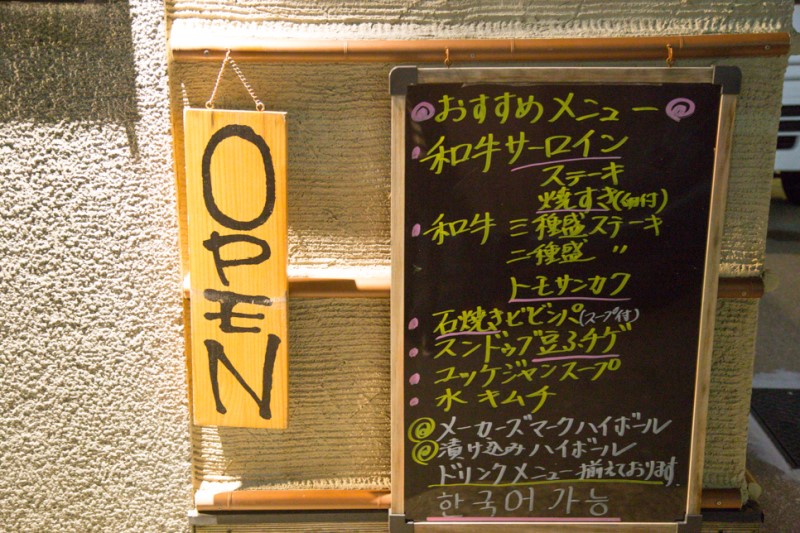 OPEN
おすすめメニュー
和牛サーロイン
ステーキ
焼すき(卵付)
和牛 三種盛ステーキ
二種盛 〃
トモサンカク
石焼きビビンパ(スープ付)
スンドゥブ豆ふチゲ
ユッケジャンスープ
水キムチ
メーカーズマークハイボール
漬け込みハイボール
ドリンクメニュー揃えております。
한국어 가능